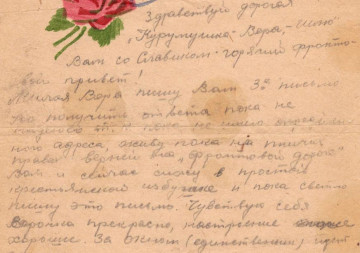 Здравствуй дорогая
"Курумушка" - Вера, - шлю
Вам со Славиком - горячий фронто-
вой привет!
Милая Вера пишу Вам 3е письмо
но получить ответа пока не
не имею
ного адреса, живу пока на птичьих
правах верней на "фронтовой дороге"
Вот и сейчас сижу в простой
крестьянской избушке и пока светло
пишу это письмо. Чувствую себя
Верочка прекрасно, настроение
хорошее. За окном (единственным) идет